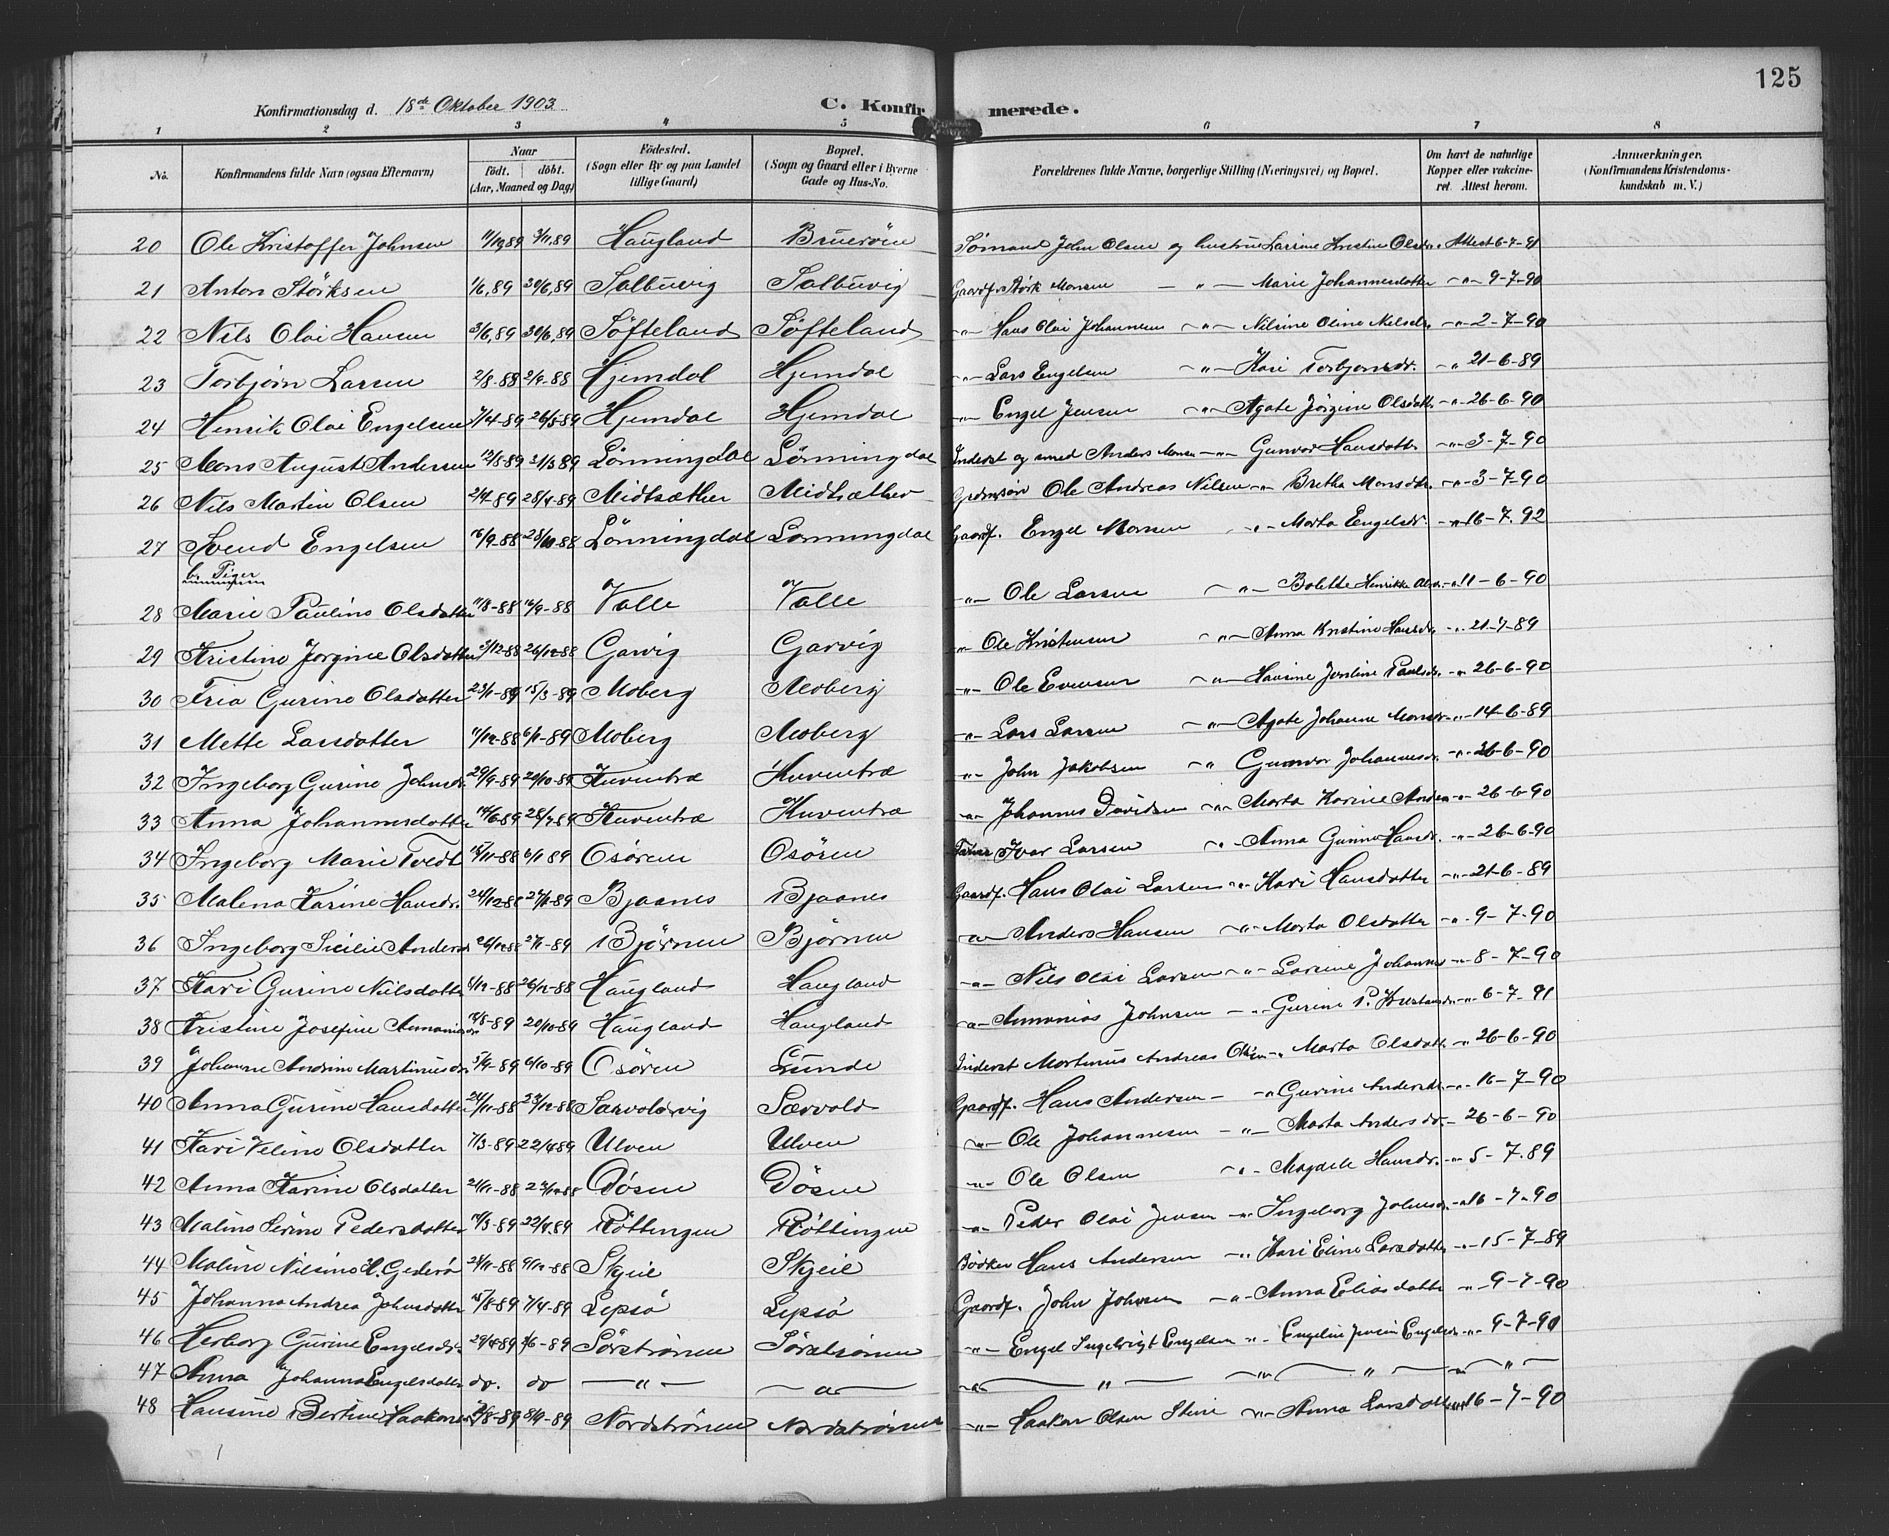 125
Konfirmationsdag d. 18de Oktober 1903. C. Konfirmerede.
1 2 3 4 5 6 7 8
No. Konfirmandens fulde Navn (ogsaa Efternavn) Naar födt. döbt. (Aar, Maaned og Dag) Födested. (Sogn eller By og paa Landet tillige Gaard) Bopæl. (Sogn og Gaard eller i Byerne Gade og Hus-No. Forældrenes fulde Navne, borgerlige Stilling (Næringsvei) og Bopæl. Om havt de naturlige Kopper eller vakcineret. Attest herom. Anmærkninger. (Konfirmandens Kristendomskundskab m. V.)
20 Ole Kristoffer Johnsen 11/10,89 3/11,89 Haugland Bruarøen Sømand John Olsen og hustru Larsine Kristine Olsdr. Attest 6-7-91
21 Anton Størksen 1/6,89 30/6,89 Salbuvig Salbuvig Gaardf. Størk Monsen — " — Marie Johannesdatter -"- 9-7-90
22 Nils Olai Hansen 3/6,89 30/6,89 Søfteland Søfteland -"- Hans Olai Johannesen -"- Nilsine Oline Nelsdr. -"- 2-7-90
23 Torbjørn Larsen 2/8-88 2/9-88 Hjemdal Hjemdal -"- Lars Engelsen -"- Kari Torbjørnsdr. -" 21-6-89
24 Henrik Olai Engelsen 7/4-89 26/5-89 Hjemdal Hjemdal -"- Engel Jensen -"- Agate Jørgine Olsdatt. -"- 26-6-90
25 Mons August Andersen 12/3-89 31/3 89 Lønningdal Lønningdal Inderst og smed Anders Monsen -"- Gunvor Hansdatter -"- 3-7-90
26 Nils Martin Olsen 2/4-89 28/4-89 Midtsæther Midtsæther Ole Andreas Nilsen -"- Bretha Monsdtr. -"- 3-7-90
27 Svend Engelsen 16/9-88 28/10-88 Lønningdal Lønningdal Gaardf. Engel Monsen -"- Marta Engelsdr. -"- 16-7.92
b. Piger
28 Marie Pauline Olsdatter 11/8-88 16/9-88 Valle Valle -"- Ole Larsen -"- Bolette Henrikke -"- 11-6-90
29 Kristine Jørgine Olsdatter 3/12-88 26/12-88 Garvig Garvig -"- Ole Kristensen -"- Anna Kristine Hansdr. -"- 21-7-89
30 Tria Gurine Olsdatter 23/1-89 15/3-89 Moberg Moberg -"- Ole Evensen -"- Hansine Paulsdr. -"- 26-6-90
31 Mette Larsdatter 17/12-88 6/1-89 Moberg Moberg -"- Lars Larsen -"- Agate Johanne Monsdr. -"- 14-6-89
32 Ingeborg Gurine Johnsdr. 29/9-89 20/10-89 Kuventræ Kuventræ -"- John Jakobsen -" Gunvor Johannesdr. -"- 26-6-90
33 Anna Johannesdatter 14/6-89 28/7-89 Kuventræ Kuventræ -"- Johannes Davidsen -"- Marta Karine -"- 26-6-90
34 Ingeborg Marie Tvedt 15/11-88 6/1 89 Osøren Osøren Ivar Larsen -" Anna Gurine Hansdr. -"- 26-6-90
35 Malena Karine Hansdr. 24/12-88 27/1-89 Bjaanes Bjaanes Gaardf. Hans Olai Larsen -"- Kari Hansdatter -"- 21-6-89
36 Ingeborg Sicilie Andersdr. 26/12-88 27/1-89 Bjørnen Bjørnen -"- Anders Hansen -"- Marta Olsdatter -"- 9-7-90
37 Kari Gurine Nilsdatter 6/12-88 26/12-88 Haugland Haugland -"- Nils Olai Larsen -"- Larsine Johannes -"- 8-7-90
38 Kristine Josefine Ammaniasdr. 18/8-89 20/10-89 Haugland Haugland -"- Ammanias Johnsen -"- Gurine P. Kristansdr. -"- 6-7-91
39 Johanne Andrine Martinusdr. 5/9-89 6/10-89 Osøren Lunde Inderst Martinus Andreas Olsen -"- Marta Olsdatt. -"- 26-6-90
40 Anna Gurine Hansdatter 24/11-88 23/12-88 Særvoldsvig Særvold Gaardf. Hans Andersen -"- Gurine Andersdr. -"- 16-7-90
41 Kari Veline Olsdatter 7/3-89 22/4-89 Ulven Ulven -"- Ole Johannesen -"- Marta Andersdr. -"- 26-6-90
42 Anna Karine Olsdatter 21/11-88 Døsen Døsen -"- Ole Olsen -"- Magdele Hansdr. -"- 5-7.89
43 Maline Serine Pedersdatter 14/3-89 22/4-89 Røttingen Røttingen -"- Peder Olai Jensen -"- Ingeborg Johnsdr. -"- 16-7-90
44 Maline Nilsine H. Gederø 24/11-88 9/12-88 Skjeie Skjeie Bødker Hans Andersen -"- Kari Eline Larsdatter -"- 15-7-89
45 Johanna Andrea Johnsdatter 15/8-89 7/4-89 Lepsø Lepsø Gaardf. John Johnsen -"- Anna Eliasdatter -"- 9-7-90
46 Herborg Gurine Engelsdr. 29/4-89 9/6-89 Sørstrønen Sørstrønen -"- Engel Ingebrigt Engelsen -"- Engeline Engelsdr. -"- 9-7-90
47 Anna Johanna Engelsdatter do. do — " — — " — — " — " — " — " — " —
48 Hansine Bertine Haakonsdr. 8/9-89 Nordstrønen Nordstrønen -"- Haakon Olsen -"- Anna Larsdatter -"- 16-7-90